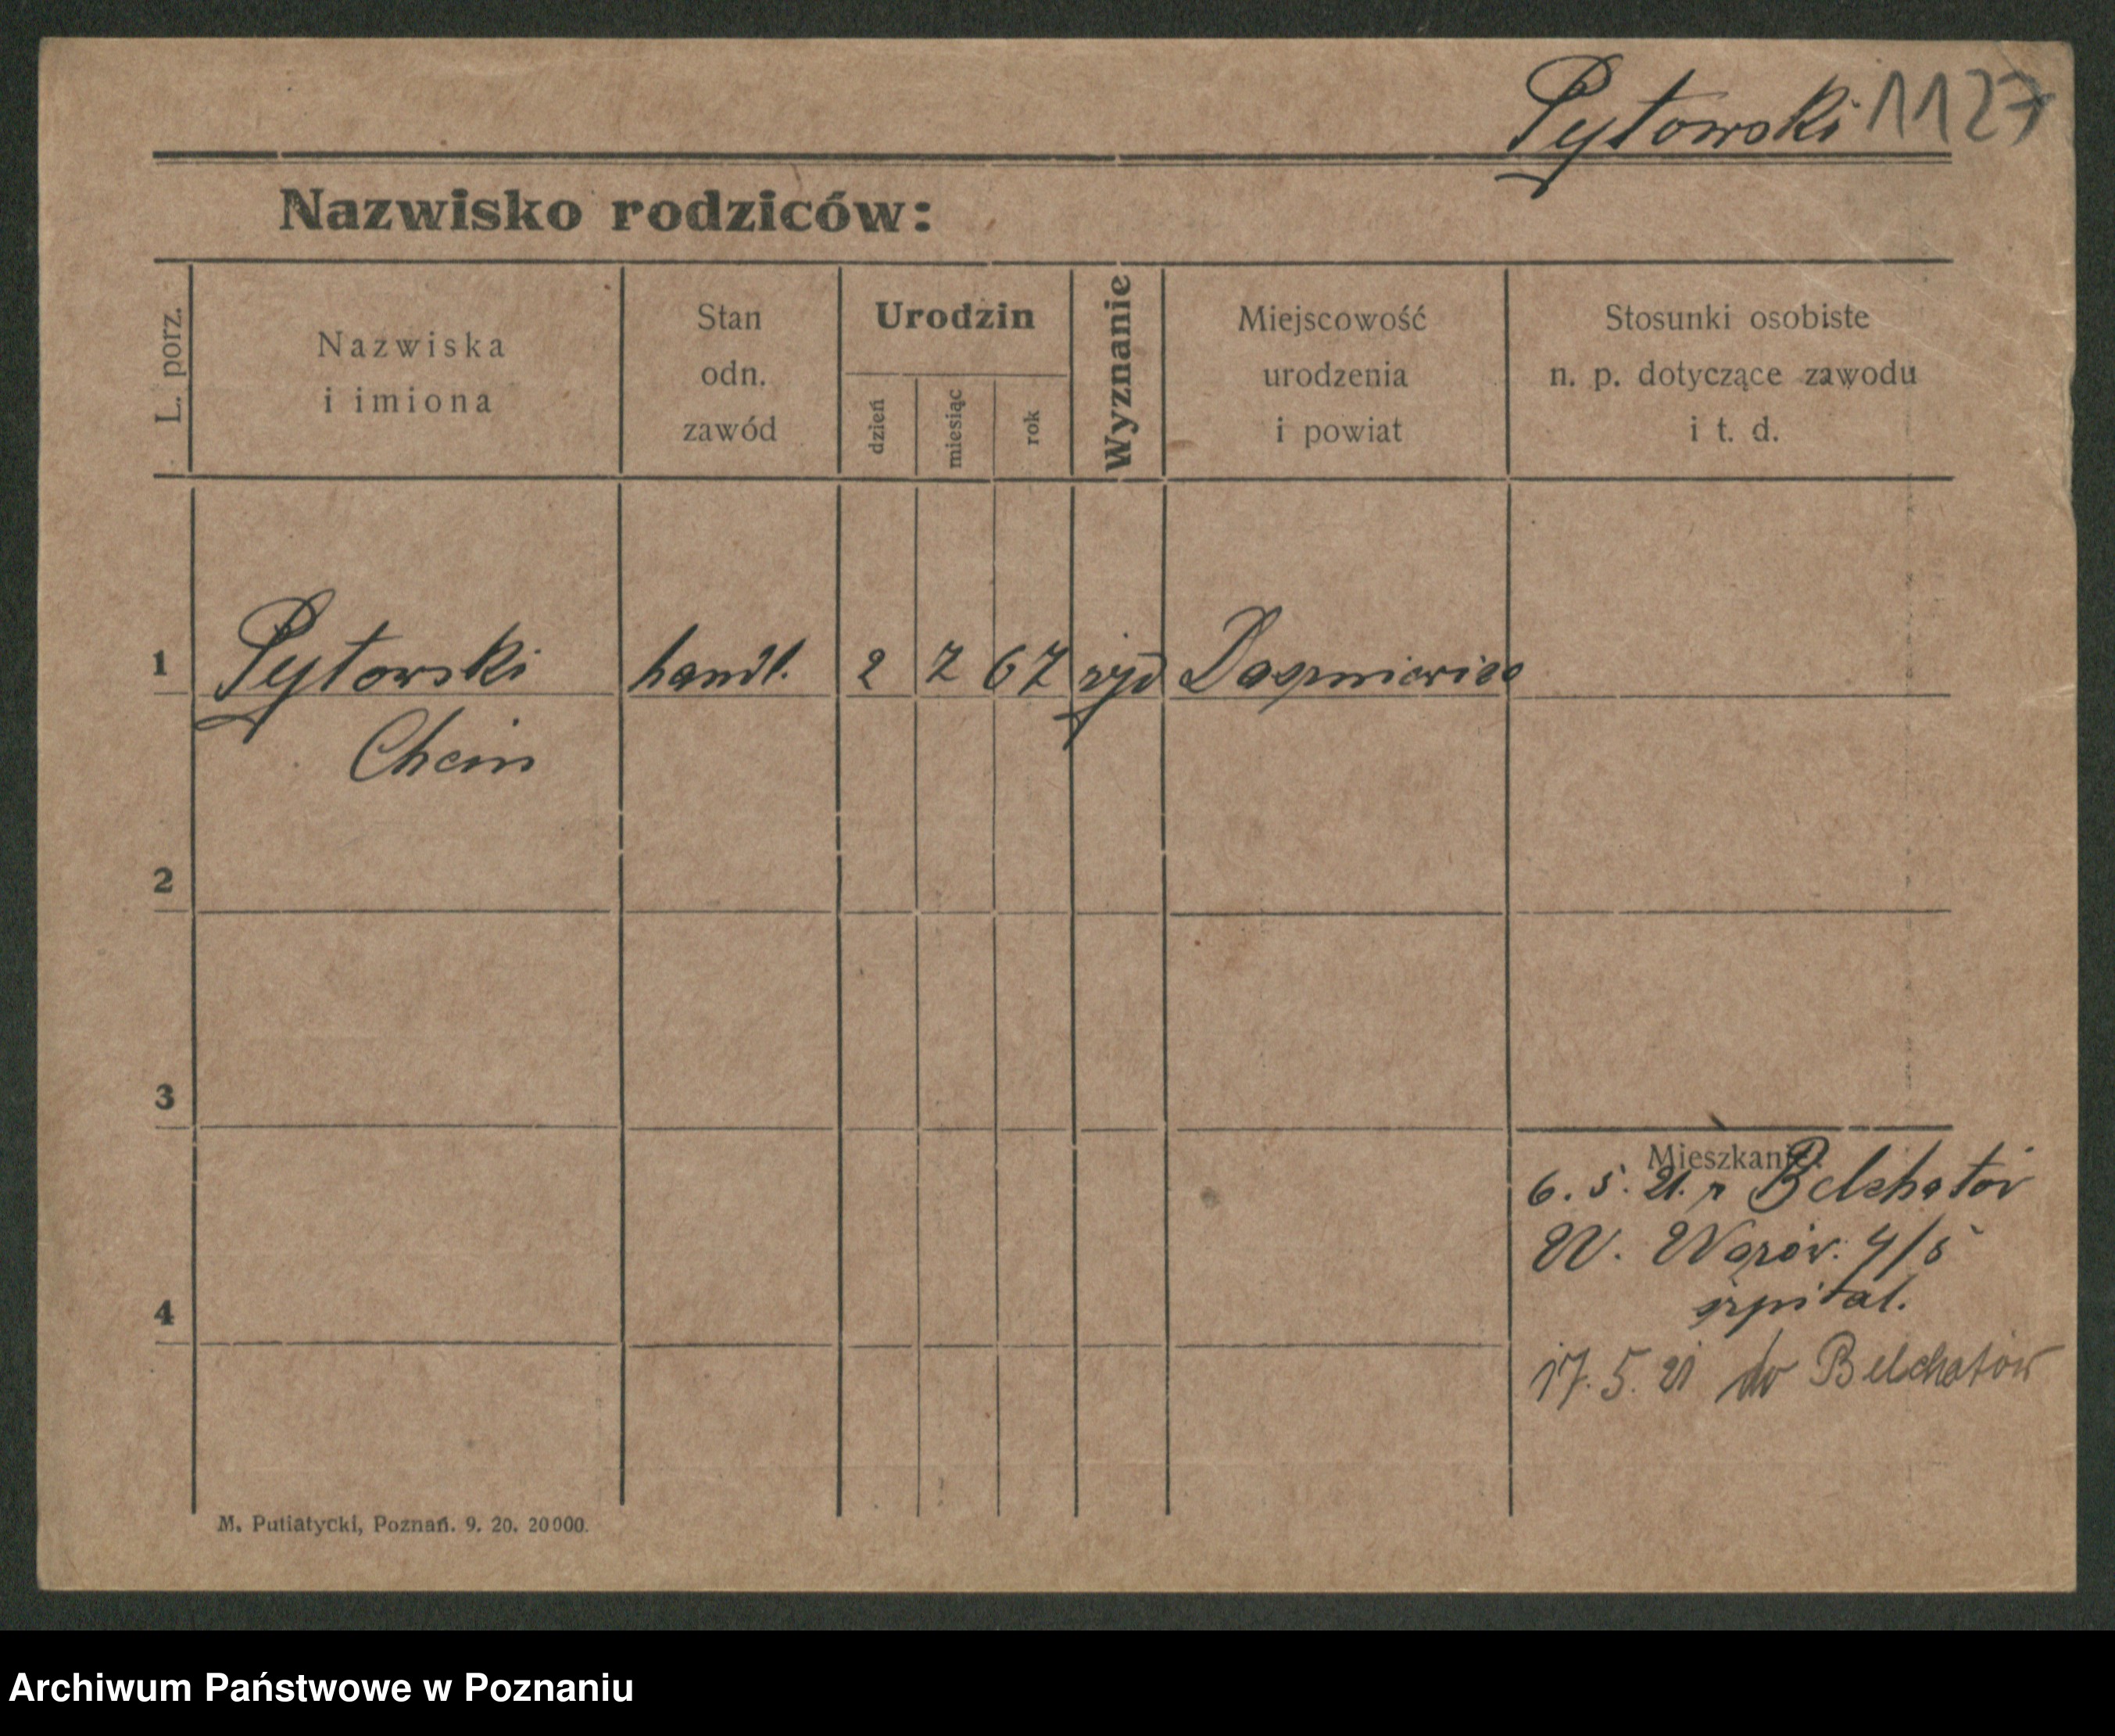 Pytowski 1127
Nazwisko rodziców:
L. porz.
Nazwiska
i imiona
Stan
odn.
zawód
Urodzin
dzień
miesiąc
rok
Wyznanie
Miejscowość
urodzenia
i powiat
Stosunki osobiste
n. p. dotyczące zawodu
i t. d.
1 Pytowski handl. 2 7 67 żyd
Chaim
2
3
4
Mieszkanie:
6. 5. 21. z Belchatów
W. 4/5
szpital.
17. 5. 21 do Belchatów
M. Putiatycki, Poznań. 9. 20. 20000.
Archiwum Państwowe w Poznaniu